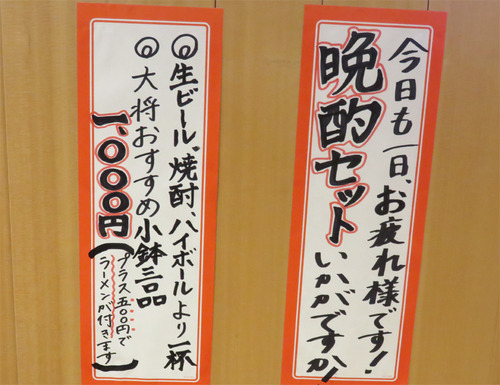 今日も一日、お疲れ様です！
晩酌セットいかがですか！
◎生ビール、焼酎、ハイボールより一杯
◎大将おすすめ小鉢三品
一、〇〇〇円
（プラス五〇〇円で
ラーメンが付きます）